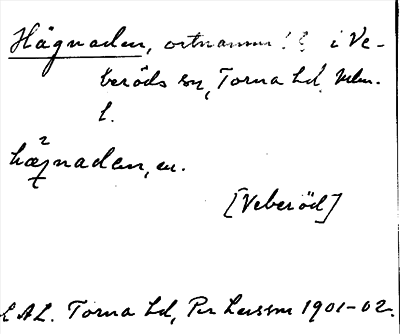 Hägnaden, ortnamn i Ve-
beröds sn, Torna hd,
l.
hägnaden, en.
[Veberöd]
LAL. Torna hd, Per Larsson 1901-02.